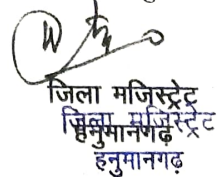 जिला मजिस्ट्रेट
जिला मजिस्ट्रेट
हनुमानगढ़
हनुमानगढ़